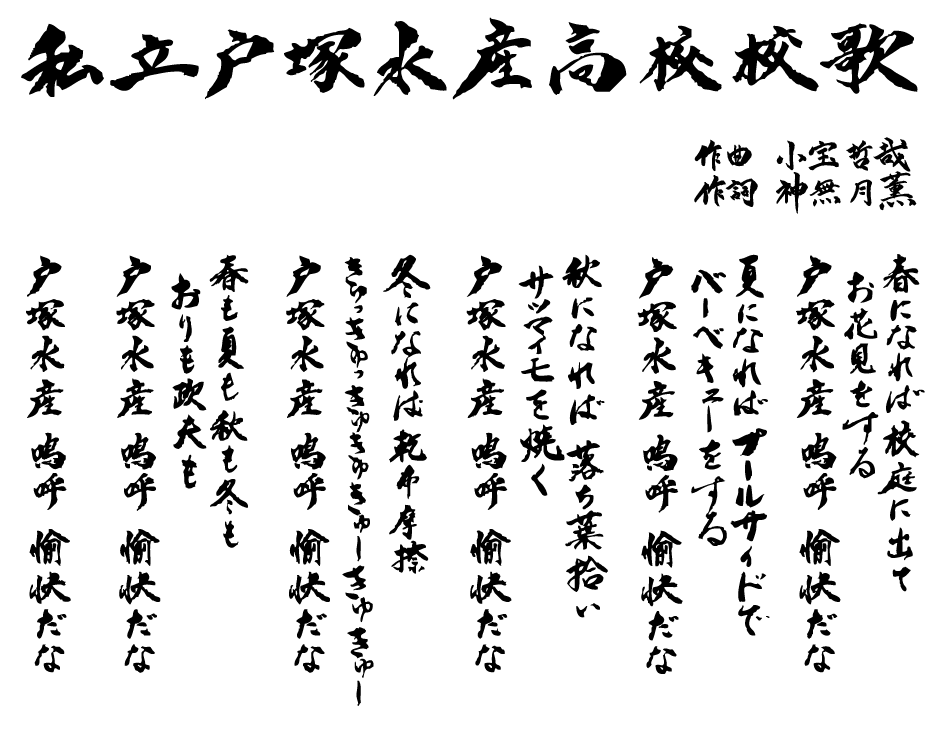 私立戸塚水産高校校歌
作曲 小宝哲哉
作詞 神無月薫
春になれば校庭に出て
お花見をする
戸塚水産 嗚呼 愉快だな
夏になれば プールサイドで
バーベキューをする
戸塚水産 嗚呼 愉快だな
秋になれば 落ち葉拾い
サツマイモを焼く
戸塚水産 嗚呼 愉快だな
冬になれば乾布摩擦
きゅっきゅっきゅきゅきゅーきゅきゅー
戸塚水産 嗚呼 愉快だな
春も夏も秋も冬も
おりも政夫も
戸塚水産 嗚呼 愉快だな
戸塚水産 嗚呼 愉快だな